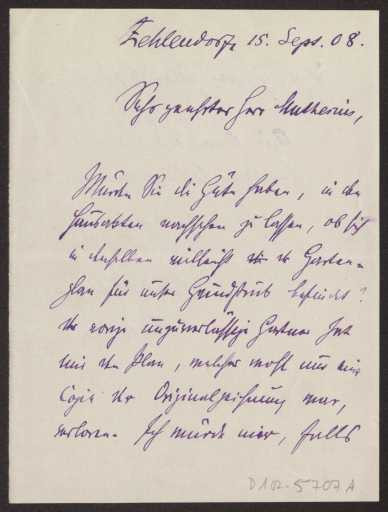 Zehlendorf, 15. Sept. 08.
Sehr geehrter Herr Muthesius,
Würden Sie die Güte haben, in den
Hausakten nachsehen zu lassen, ob sich
in denselben vielleicht der Garten-
plan für unser Grundstück befindet?
Der vorige unzuverlässige Gärtner hat
mir den Plan, welcher wohl nur eine
Copie der Originalzeichnung war,
verloren. Ich würde mir, falls
D 102-5707 A